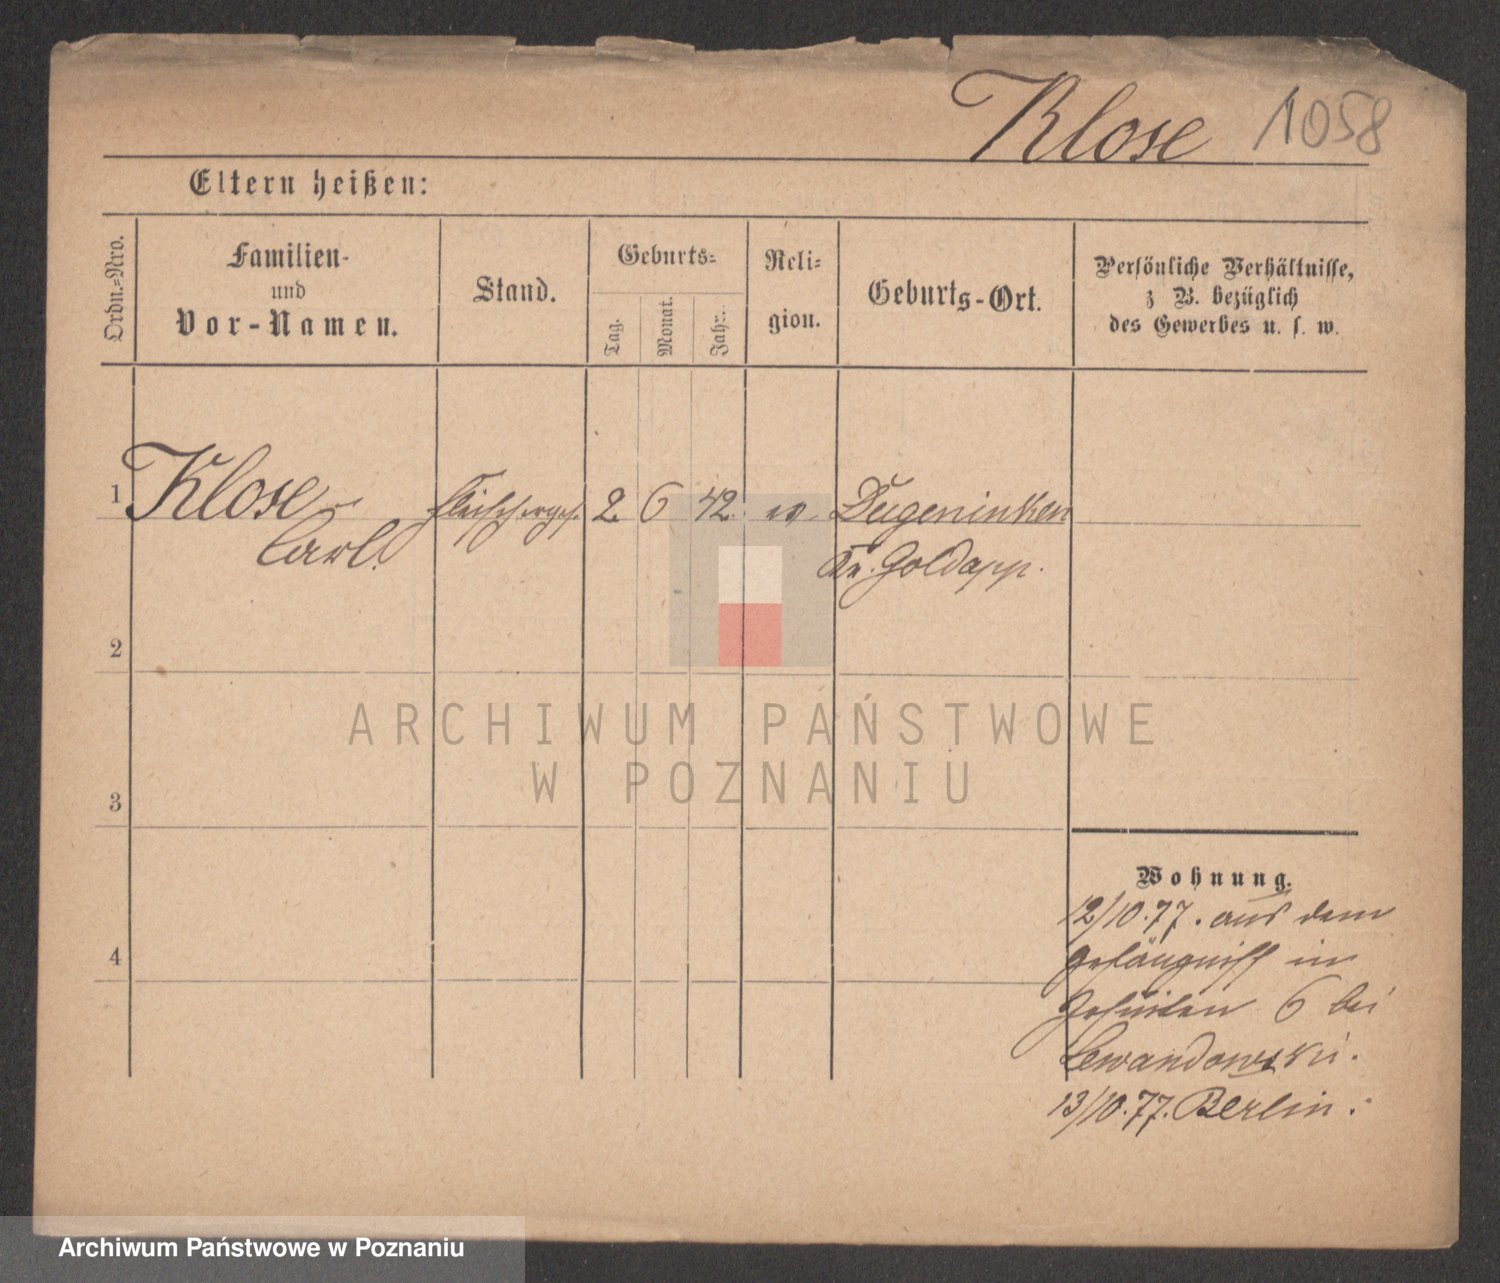 Klose 1058
Eltern heißen:
Ordn.-Nro.
Familien-
und
Vor-Namen.
Stand.
Geburts-
Tag.
Monat.
Jahr.
Reli-
gion.
Geburts-Ort.
Persönliche Verhältnisse,
z B. bezüglich
des Gewerbes u. s. w.
1 Klose Fleischerges. 2 6 42 ev
Carl.
Kr. Goldapp.
2
3
4
Wohnung.
12/10.77. aus dem
Gefängniß in
Jesuiten 6 bei
Lewandowski.
13/10.77. Berlin.
ARCHIWUM PAŃSTWOWE
W POZNANIU
Archiwum Państwowe w Poznaniu